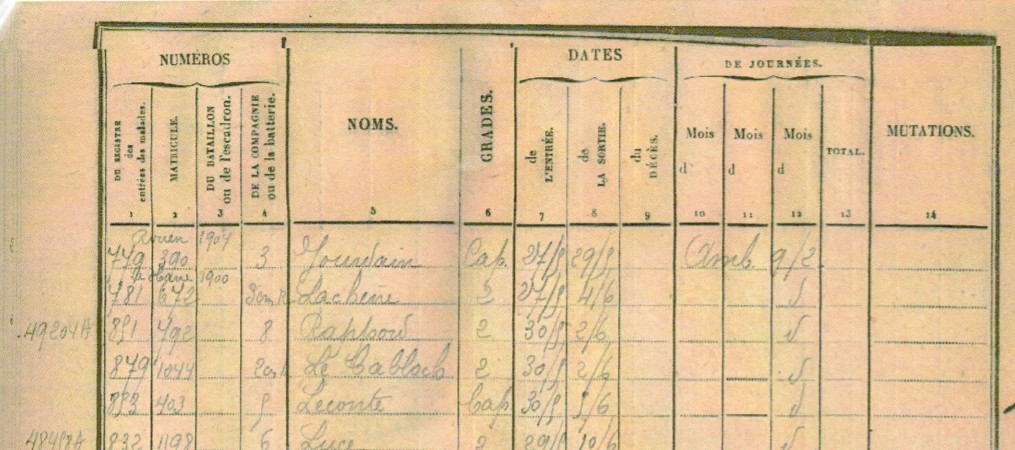 NUMÉROS DATES DE JOURNÉES.
DU REGISTRE des entrées des malades. MATRICULE. DU BATAILLON ou de l'escadron. DE LA COMPAGNIE ou de la batterie. NOMS. GRADES. de L'ENTRÉE. de LA SORTIE. du DÉCÈS. Mois d Mois d Mois d TOTAL. MUTATIONS.
1 2 3 4 5 6 7 8 9 10 11 12 13 14
Rouen 1904
779 390 3 Jourdain Cap. 27/5 29/5 Amb. 9/2
1900
781 672 2 27/5 4/6
49204A 792 8 2 30/5 2/6
879 1044 2 30/5 2/6
403 5 Leconte Cap 30/5
832 1198 6 Luce 2 29/5 10/6